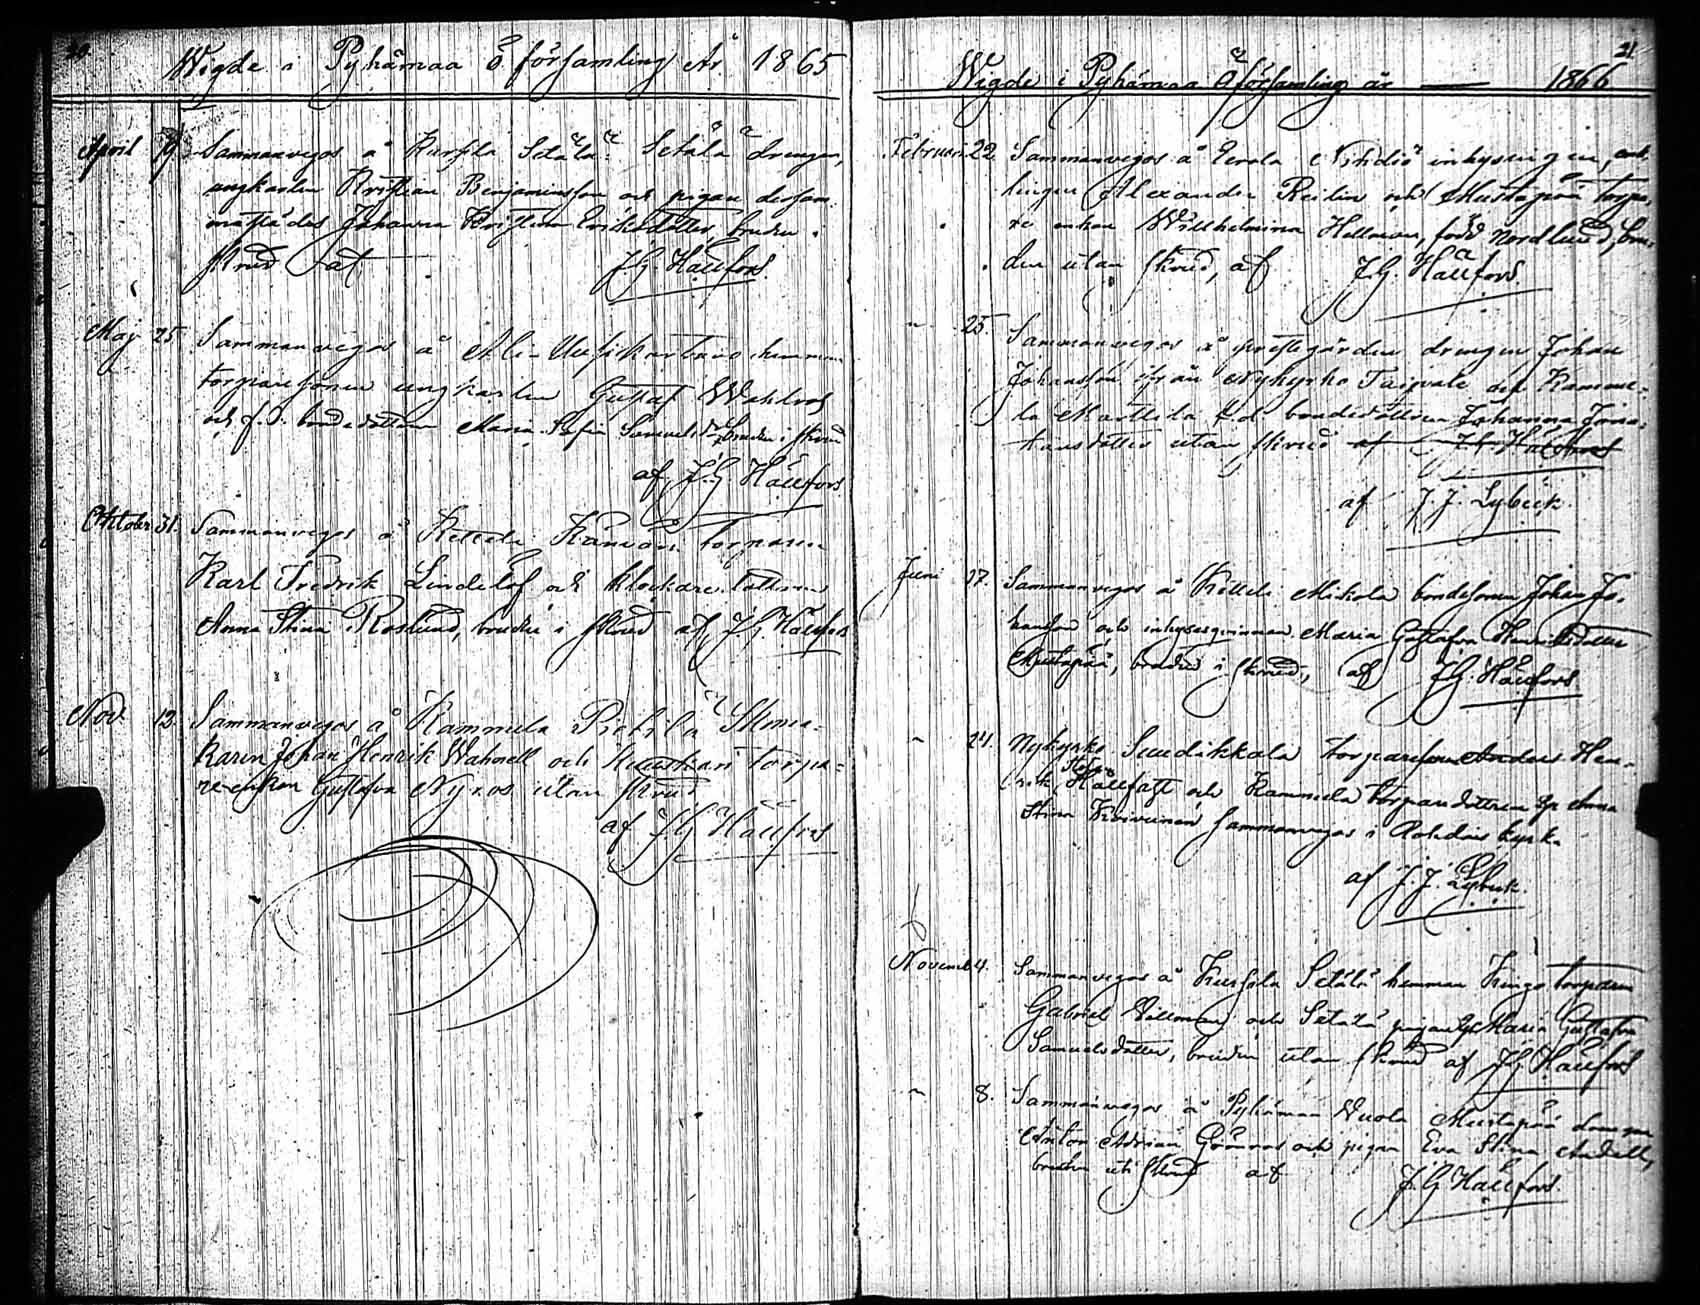 20.
Wigde i Pyhämaa Ö församling År 1865
April 19. Sammanvigos å Kursila Sälälä Setälä drengen,
ungkarlen Kristian Benjaminsson och pigan dersam
mastädes Johanna Kristina Eriksdotter, bruden i
skrud af J G Hällfors
Maj 25 Sammanvigos å Ali- hemman
torparesonen ungkarlen Gustaf Wahlros
och f. d. bondedottren Maria Sofia Samuelsdr bruden i skrud
af J. G Hällfors
Oktober 31. Sammanvigos å Ketteli torparen
Karl Fredrik Lindelöf och klockaredottren
Anna Stina Roslund, bruden i skrud af J G Hällfors
Nov. 12 Sammanvigos å Kammela Pietilä
karen Johan Henrik Wahnell och torpa-
re enkan Gustafva Nyroos utan skrud
af J G Hällfors
21
Wigde i Pyhämaa Ö församling år — 1866
Februari 22 Sammanvigos å Eerola inhysingen, enk
lingen Alexander Reilin och Mustapää torpa-
re enkan Willhelmina Hellman, född Nordlund, bru-
den utan skrud, af J G Hällfors.
" 25. Sammanvigos å prestgården drengen Johan
Johansson från Nykyrko Taipale och Kamme-
la Marttila f.d. bondedottren Johanna Jona-
tansdotter utan skrud af J G Hällfors
af J. J. Lybeck.
Juni 17. Sammanvigos å Ketteli Mikola bondesonen Johan Jo-
hansson och inhysesqvinnan Maria Gustafva Henriksdotter
Mustapää, bruden i skrud, af J G. Hällfors
" 24. Nykyrko Suudikkala torparesonen Anders Hen-
rik Hällfast och Kammela torparedottren Anna
Stina sammanvigos i Rohdais kyrka
af J. J. Lybeck.
Novemb 4. Sammanvigos å Kursila Setälä hemman Kingo torparen
Gabriel Wellman och Setälä pigan Maria Gustafva
Samuelsdotter, bruden utan skrud af J G Hällfors
" 8. Sammanvigos å Pyhämaa Vuola Mustapää drengen
Anton Adrian Grönroos och pigan Eva Stina Andell,
bruden uti skrud af J. G Hällfors.